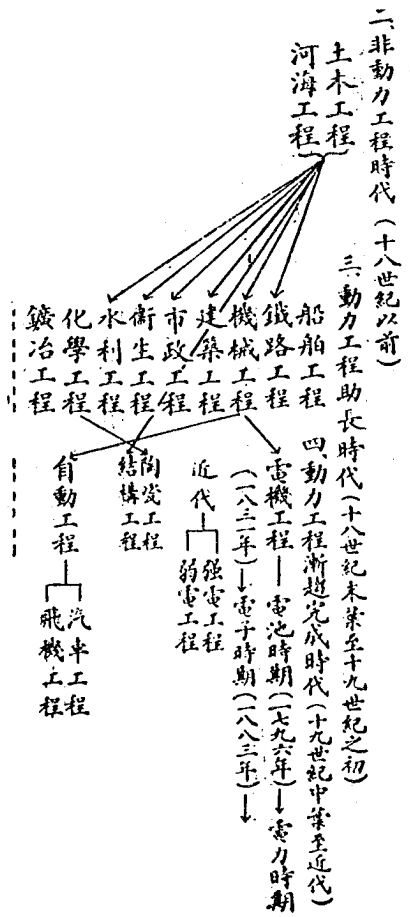 二、非動力工程時代（十八世紀以前）
土木工程
河海工程
三、動力工程助長時代（十八世紀末葉至十九世紀之初）
船舶工程
鐵路工程
機械工程
建築工程
市政工程
衛生工程
水利工程
化學工程
鑛冶工程
四、動力工程漸趨完成時代（十九世紀中葉至近代）
電機工程—電池時期（一七九六年）→電力時期
（一八三一年）→電子時期（一八八三年）→
近代
强電工程
弱電工程
陶瓷工程
結構工程
自動工程
汽車工程
飛機工程